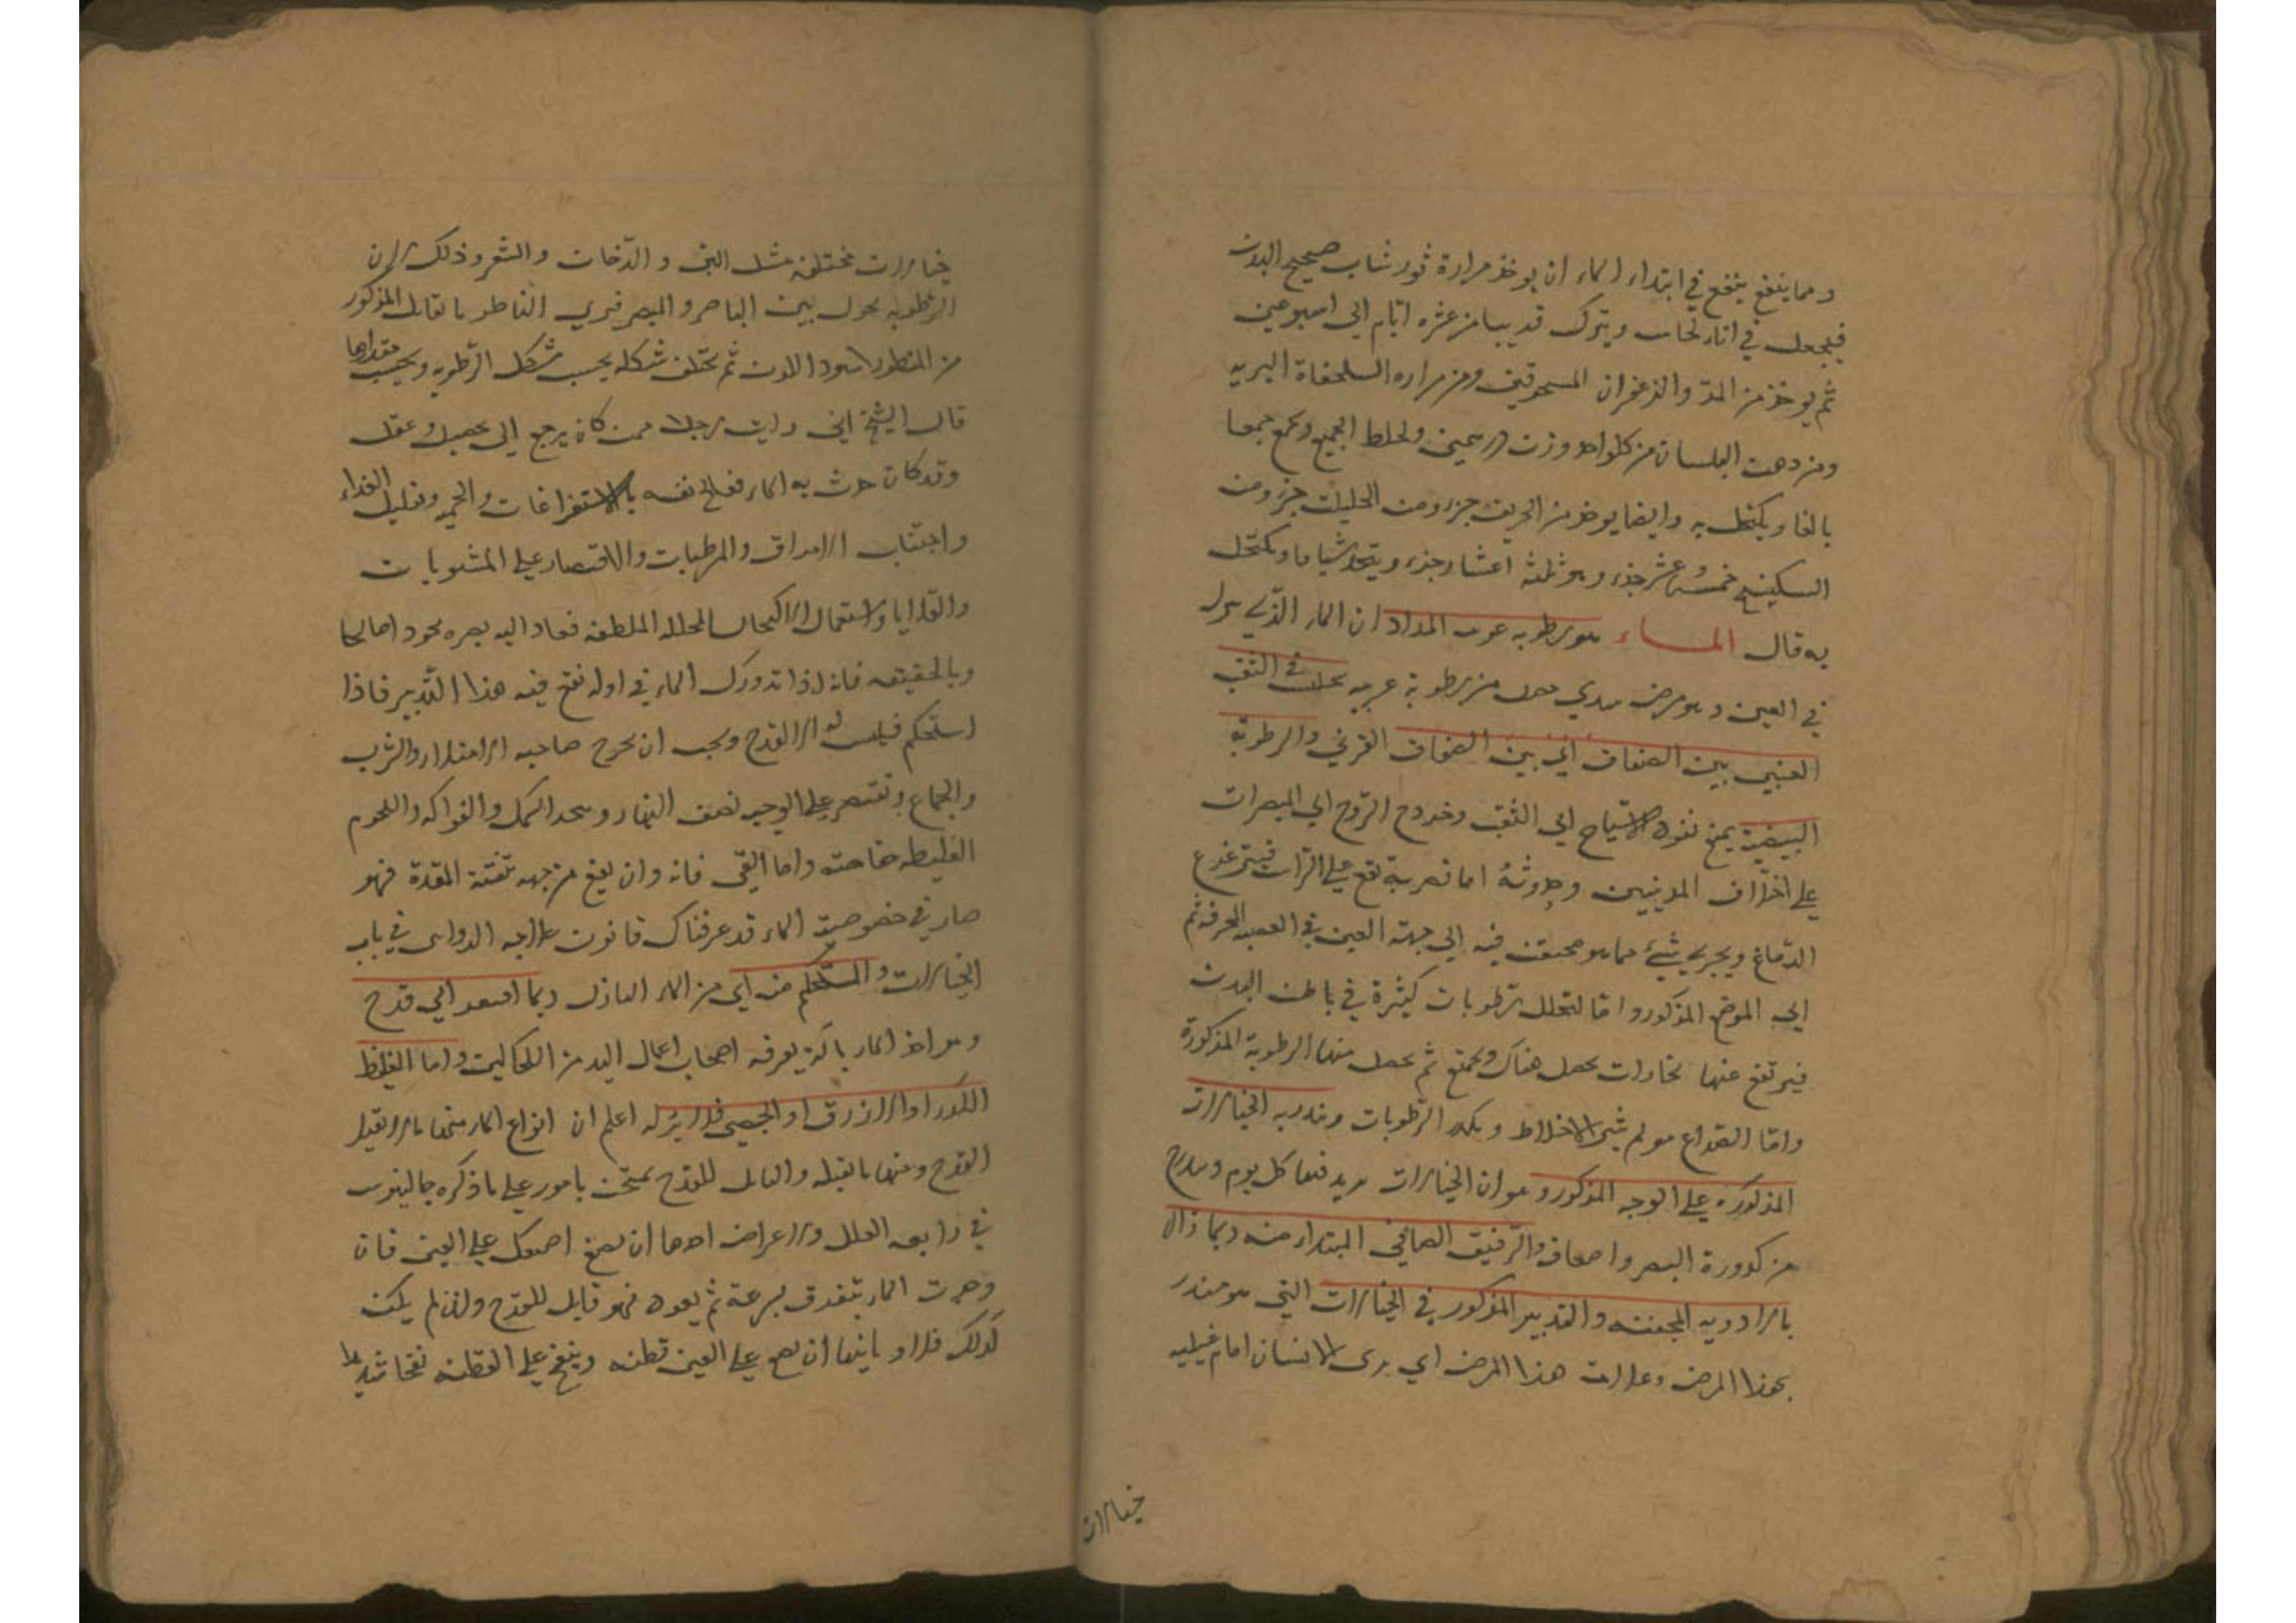 ومما ينفع ينفع في ابتداء الماء ان يوخذ مرارة ثور شاب صحيح البدن
فيجعل في اناء نحاس ويترك قريبا من عشره ايام الي اسبوعين
ثم يوخذ من المر والزعفران المسحوقين ومن مراره السلحفاة البريه
ومن دهن البلسان من كل واحد وزن درهمين ويخلط الجميع ويجمع جمعا
بالغا ويكتحل به وايضا يوخذ من الخربق جزء ومن الحلتيت جزء ومن
السكبينج خمس وعشر جزء وهو ثلثه اعشار جزء ويتخذ شيافا ويكتحل
به قال الماء هو رطوبه غريبه المراد ان الماء الذي ينزل
في العين وهو مرض سدي يحصل من رطوبة غريبه تحدث في الثقب
العنبي بين الصفاق اي بين الصفاق القرني والرطوبة
البيضية يمنع نفوذ الاشباح الي الثقب وخروج الروح الي المبصرات
علي اختلاف المذهبين وحدوثه اما لضربة تقع علي الراس فيتزعزع
الدماغ ويجري شيء مما هو محتقن فيه الي جهة العين في العصبه المجوفه ثم
الي الموضع المذكور واما لتحلل رطوبات كثيرة في باطن البدن
فيرتفع عنها بخارات يحصل هناك ويجتمع ثم يحصل منها الرطوبة المذكورة
واما الصداع مولم يثير الاخلاط ويكدر الرطوبات وينذر به الخيالات
المذكوره علي الوجه المذكور وهو ان الخيالات يزيد فيها كل يوم ويتدرج
من كدورة البصر واضعافه والرقيق الصافي المبتداء منه ربما زال
بالادويه المجففه والتدبير المذكور في الخيالات التي هو منذر
بهذا المرض وعلامة هذا المرض اي يرى الانسان امام عينيه
خيالات
خيالات مختلفه مثل البق والدخان والشعر وذلك لان
الرطوبه يحول بين الباصر والمبصر فيري الناظر ما يقابل المذكور
من المنظور اسود اللون ثم يختلف شكله بحسب شكل الرطوبه وبحسب مقدارها
قال الشيخ اني رايت رجلا ممن كان يرجع الي تحصيل وعقل
وقد كان حدث به الماء فعالج نفسه بالاستفراغات والحميه وتقليل الغداء
واجتناب الامراق والمرطبات والاقتصار علي المشويات
والقلايا واستعمال الاكحال المحلله الملطفه فعاد اليه بصره عودا صالحا
وبالحقيقه فانه اذا تدورك الماء في اوله نفع فيه هذا التدبير فاذا
استحكم فليس له الا القدح ويجب ان يهجر صاحبه الامتلاء والشرب
والجماع ويقتصر علي الوجبه نصف النهار ويهجر السمك والفواكه واللحوم
الغليظه خاصته واما القي فانه وان نفع من جهه تنقية المعدة فهو
ضار في خصوصية الماء قد عرفناك قانون علاجه الدوائي في باب
الخيالات والمستحكم منه اي من الماء النازل ربما افتقر الي قدح
وهو اخذ الماء بالة يعرفه اصحاب اعمال اليد من الكحالين واما الغليظ
الكدر او الازرق او الجصي فلا برء له اعلم ان انواع الماء منها ما لا يقبل
القدح ومنها ما يقبله والقابل للقدح يمتحن بامور علي ما ذكره جالينوس
في رابعه العلل والاعراض احدها ان يضع اصبعك علي العين فان
وجدت الماء يتفرق بسرعة ثم يعود فهو قابل للقدح وان لم يكن
كذلك فلا وثانيها ان يضع علي العين قطنه وينفخ علي القطنه نفخا شديدا